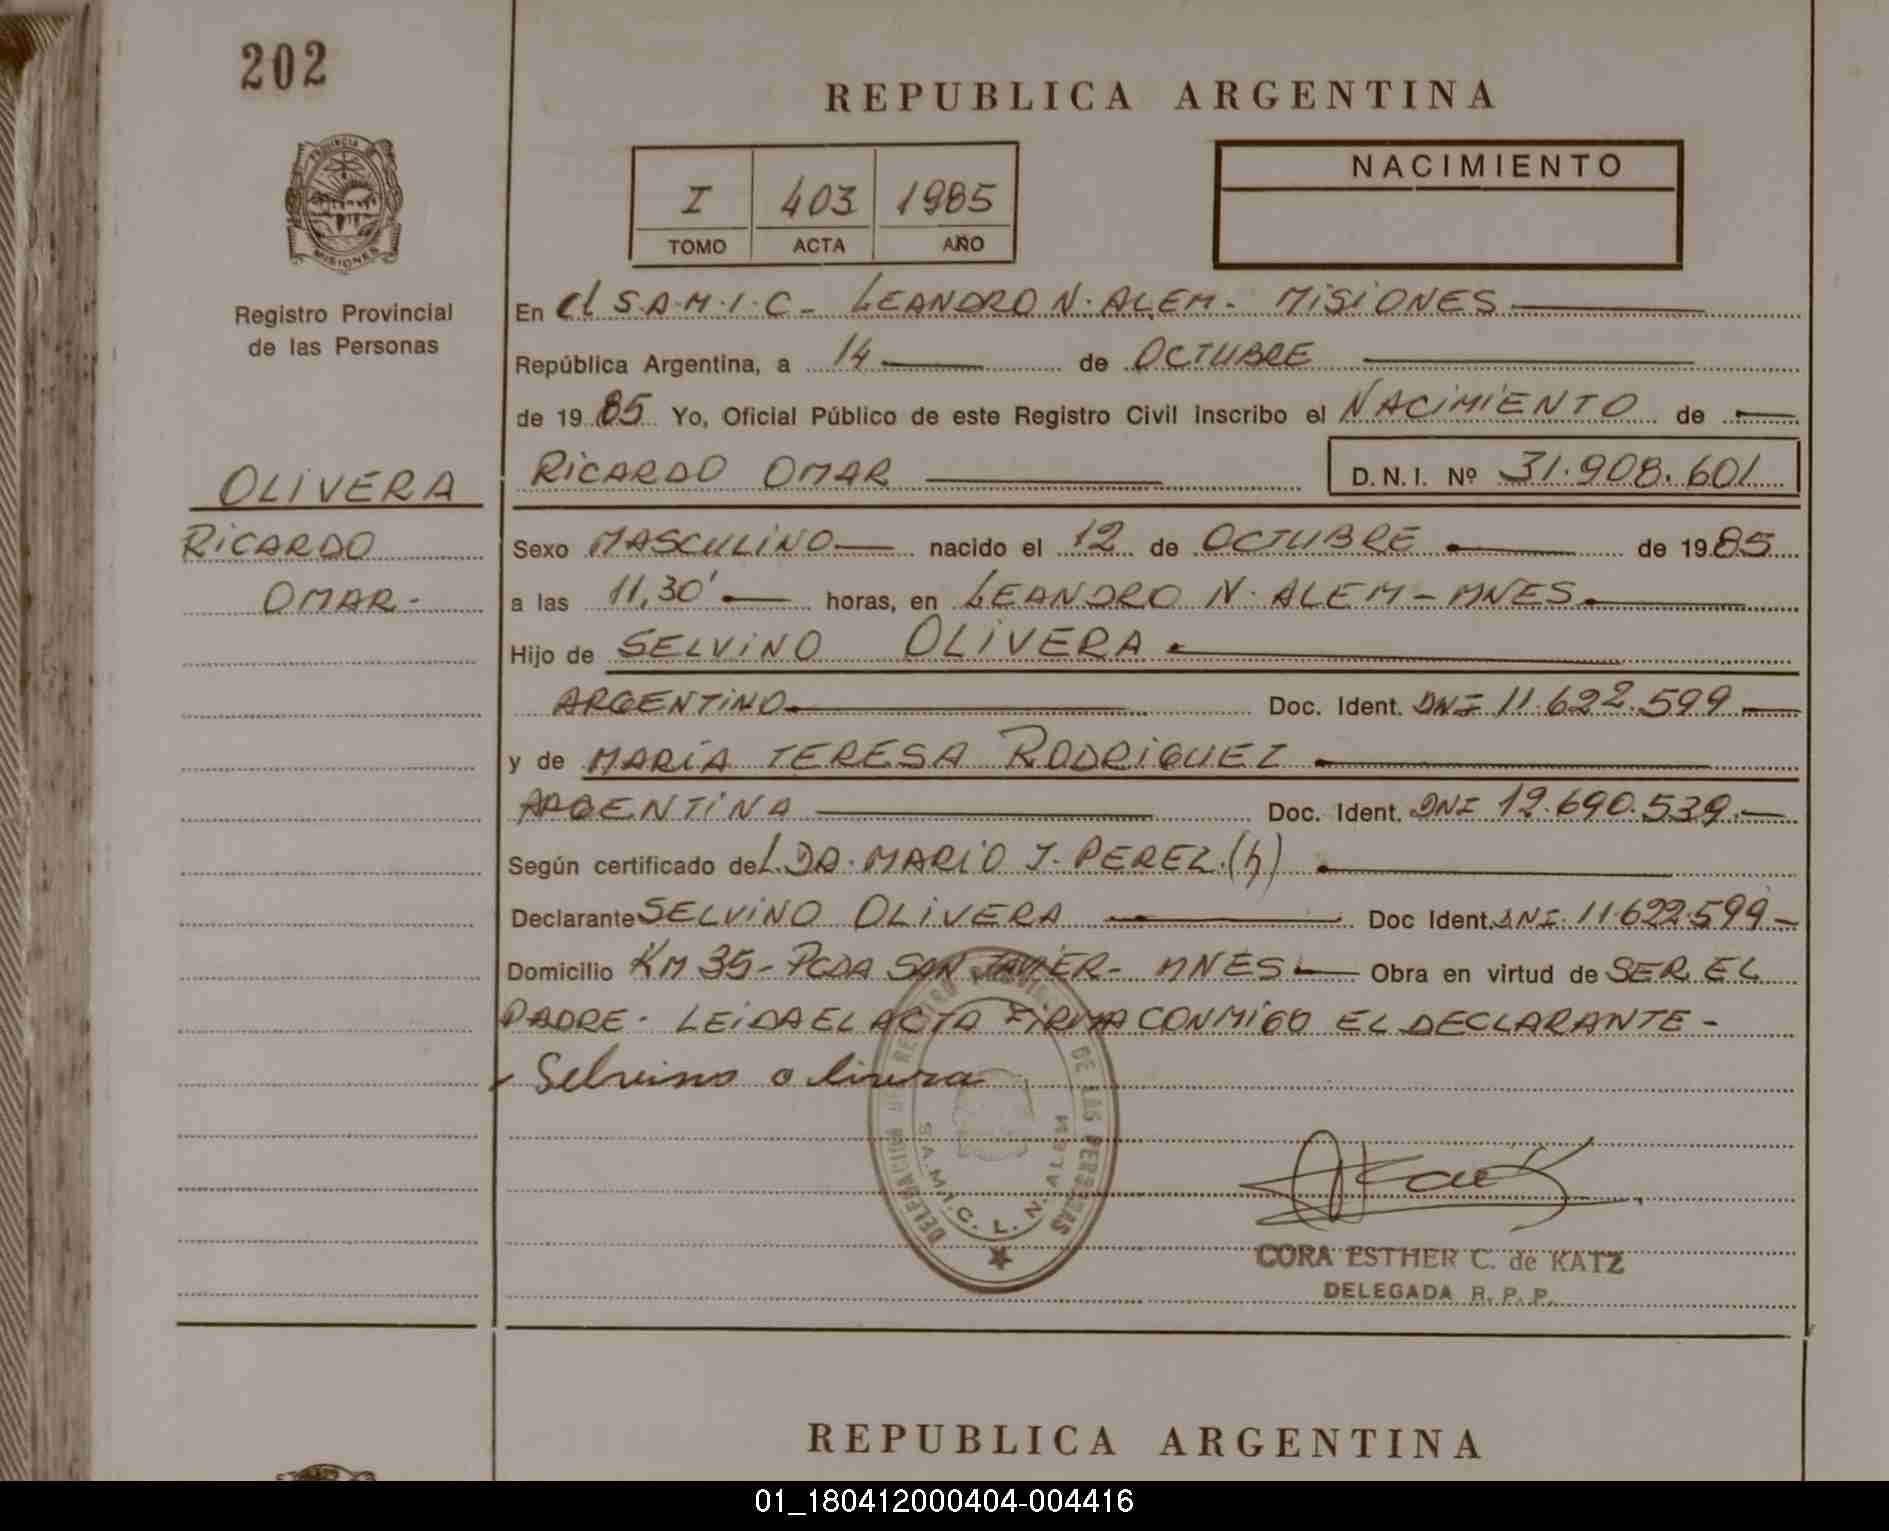 202
REPUBLICA ARGENTINA
PROVINCIA DE
MISIONES
Registro Provincial
de las Personas
NACIMIENTO
I 403 1985
TOMO ACTA AÑO
En el S.A.M.I.C - LEANDRO N. ALEM - MISIONES
República Argentina, a 14 de OCTUBRE
de 1985 Yo, Oficial Público de este Registro Civil inscribo el NACIMIENTO de
OLIVERA
RICARDO
OMAR-
RICARDO OMAR D.N.I. Nº 31.908.601
Sexo MASCULINO nacido el 12 de OCTUBRE de 1985
a las 11,30' horas, en LEANDRO N. ALEM - MNES
Hijo de SELVINO OLIVERA
ARGENTINO Doc. Ident. DNI 11.622.599
y de MARÍA TERESA RODRIGUEZ
ARGENTINA Doc. Ident. DNI 12.690.539.
Según certificado del DR. MARIO J. PEREZ (h)
Declarante SELVINO OLIVERA Doc Ident. DNI. 11.622.599-
Domicilio KM 35 - PCDA SAN JAVIER - MNES Obra en virtud de SER EL
PADRE - LEIDA EL ACTA FIRMA CONMIGO EL DECLARANTE -
Selvino olivera
DELEGACION REGISTRO PROVINCIAL DE LAS PERSONAS
S.A.M.I.C. L. N. ALEM
CORA ESTHER C. de KATZ
DELEGADA R. P. P.
REPUBLICA ARGENTINA
01_180412000404-004416